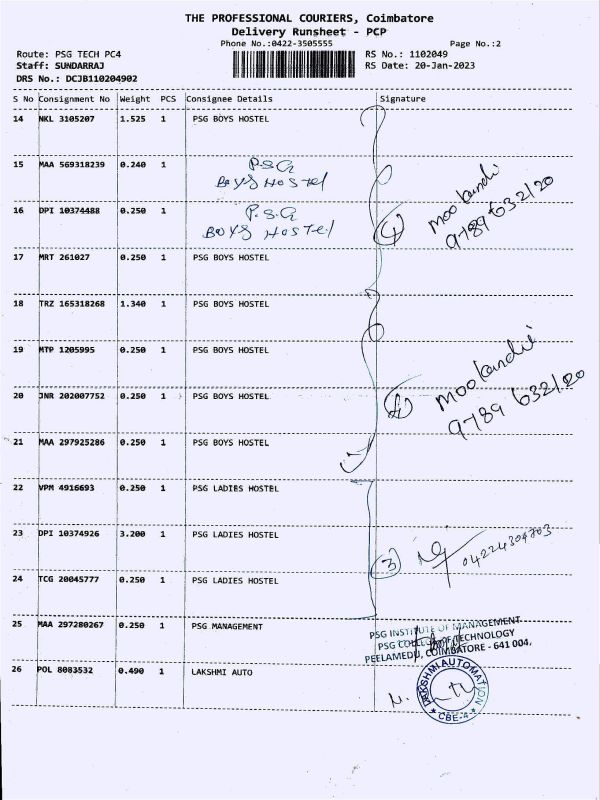 THE PROFESSIONAL COURIERS, Coimbatore
Delivery Runsheet - PCP
Phone No.:0422-3505555 Page No.:2
Route: PSG TECH PC4 RS No.: 1102049
Staff: SUNDARRAJ RS Date: 20-Jan-2023
DRS No.: DCJB110204902
S No Consignment No Weight PCS Consignee Details Signature
14 NKL 3105207 1.525 1 PSG BOYS HOSTEL
15 MAA 569318239 0.240 1 P.S.G
BOYS HOSTEL
16 DPI 10374488 0.250 1 P.S.G
BOYS HOSTEL
4 mookandi
9789632120
17 MRT 261027 0.250 1 PSG BOYS HOSTEL
18 TRZ 165318268 1.340 1 PSG BOYS HOSTEL
19 MTP 1205995 0.250 1 PSG BOYS HOSTEL
20 JNR 202007752 0.250 1 PSG BOYS HOSTEL
4 mookandi
9789632120
21 MAA 297925286 0.250 1 PSG BOYS HOSTEL
22 VPM 4916693 0.250 1 PSG LADIES HOSTEL
23 DPI 10374926 3.200 1 PSG LADIES HOSTEL
3
24 TCG 20045777 0.250 1 PSG LADIES HOSTEL
25 MAA 297280267 0.250 1 PSG MANAGEMENT
PSG INSTITUTE OF MANAGEMENT
PSG COLLEGE OF TECHNOLOGY
PEELAMEDU, COIMBATORE - 641 004.
26 POL 8083532 0.490 1 LAKSHMI AUTO
LAKSHMI AUTOMATION
CBE-4